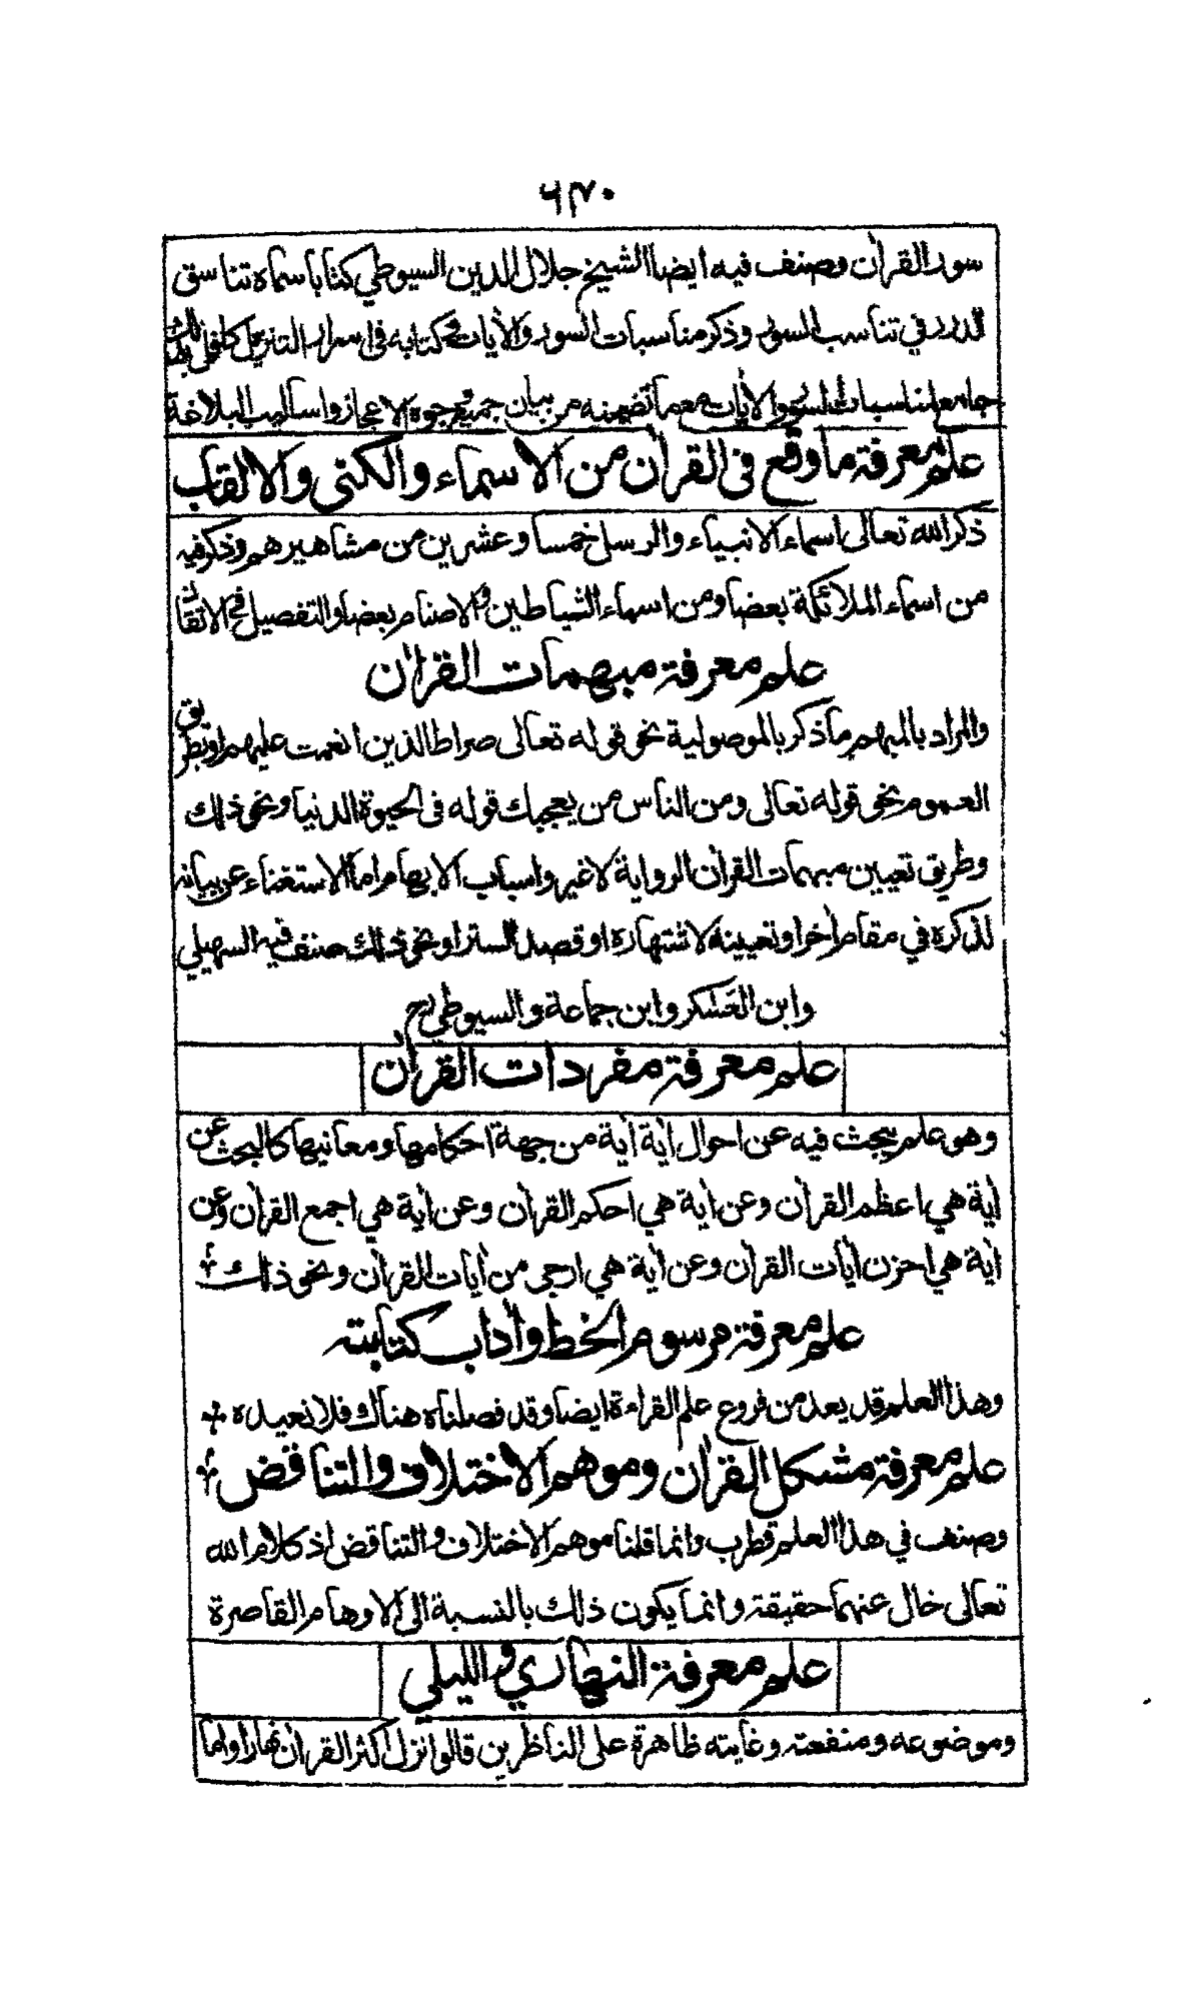 ٦٧٠
سور القرآن وصنف فيه ايضا الشيخ جلال الدين السيوطي كتابا سماه تناسق
الدرر في تناسب السور وذكر مناسبات السور والآيات في كتابه في اسرار التنزيل كافل بذلك
جامع لمناسبات السور والآيات مع ما تضمنه من بيان جميع وجوه الاعجاز واساليب البلاغة
علم معرفة ما وقع فى القرآن من الاسماء والكنى والالقاب
ذكر الله تعالى اسماء الانبياء والرسل خمسا وعشرين من مشاهيرهم وذكر فيه
من اسماء الملائكة بعضا ومن اسماء الشياطين والاصنام بعضا والتفصيل في الاتقان
علم معرفة مبهمات القرآن
والمراد بالمبهم ما ذكر بالموصولية نحو قوله تعالى صراط الذين انعمت عليهم او بطريق
العموم نحو قوله تعالى ومن الناس من يعجبك قوله فى الحيوة الدنيا ونحو ذلك
وطريق تعيين مبهمات القرآن الرواية لا غير واسباب الابهام اما الاستغناء عن بيانه
لذكره في مقام آخر او تعيينه لاشتهاره او قصد الستر او نحو ذلك صنف فيه السهيلي
وابن العسكر وابن جماعة والسيوطي رح
علم معرفة مفردات القرآن
وهو علم يبحث فيه عن احوال آية آية من جهة احكامها ومعانيها كالبحث عن
آية هي اعظم القرآن وعن آية هي احكم القرآن وعن آية هي اجمع القرآن وعن
آية هي احزن آيات القرآن وعن آية هي ارجى من آيات القرآن ونحو ذلك
علم معرفة مرسوم الخط وآداب كتابته
وهذا العلم قد يعد من فروع علم القراءة ايضا وقد فصلناه هناك فلا نعيده
علم معرفة مشكل القرآن وموهم الاختلاف والتناقض
وصنف في هذا العلم قطرب وانما قلنا موهم الاختلاف والتناقض اذ كلام الله
تعالى خال عنهما حقيقة وانما يكون ذلك بالنسبة الى الاوهام القاصرة
علم معرفة النهاري والليلي
وموضوعه ومنفعته وغايته ظاهرة على الناظرين قالوا نزل اكثر القرآن نهارا واما